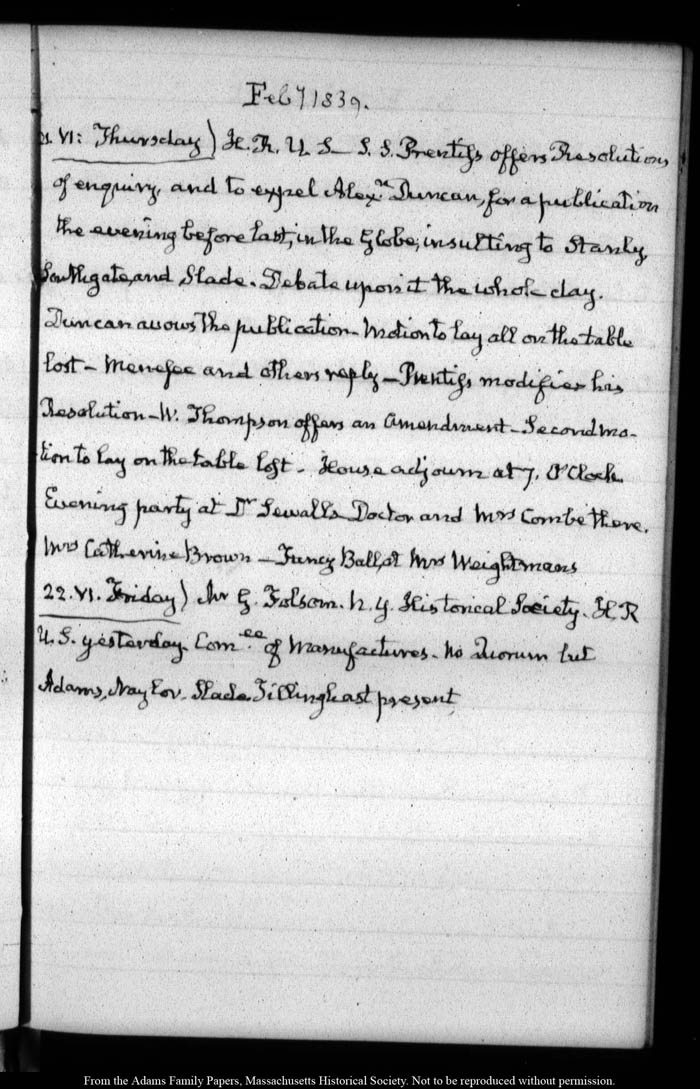 Feby 1839.
21. VI: Thursday) H. R. U S— S. S. Prentiss offers Resolutions
of enquiry, and to expel Alexr. Duncan, for a publication
the evening before last, in the Globe, insulting to Stanly,
Southgate, and Slade. Debate upon it the whole day.
Duncan avows the publication— Motion to lay all on the table
lost— Menefee and others reply— Prentiss modifies his
Resolution— W. Thompson offers an Amendment— Second mo-
tion to lay on the table lost— House adjourn at 7. O'Clock
Evening party at Dr Sewall's Doctor and Mrs Combe there.
Mrs Catherine Brown— Fancy Ball, at Mrs Weightmans
22. VI. Friday) Mr G. Folsom. N. Y. Historical Society. H R
U. S. yesterday. Comee. of Manufactures. No Quorum but
Adams, Naylor, Slade Tillinghast present
From the Adams Family Papers, Massachusetts Historical Society. Not to be reproduced without permission.